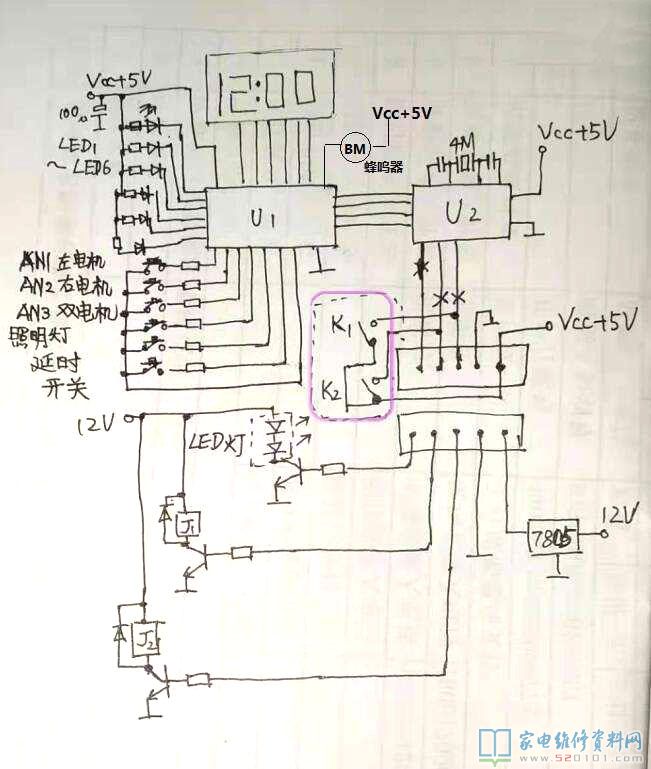 Vcc+5V
12:00
100
Vcc+5V
BM
蜂鸣器
4M
Vcc+5V
LED1
~LED6
U1
U2
AN1 左电机
AN2 右电机
AN3 双电机
照明灯
延时
开关
K1
K2
Vcc+5V
12V
LED灯
J1
7805
12V
J2
家电维修资料网
www.520101.com